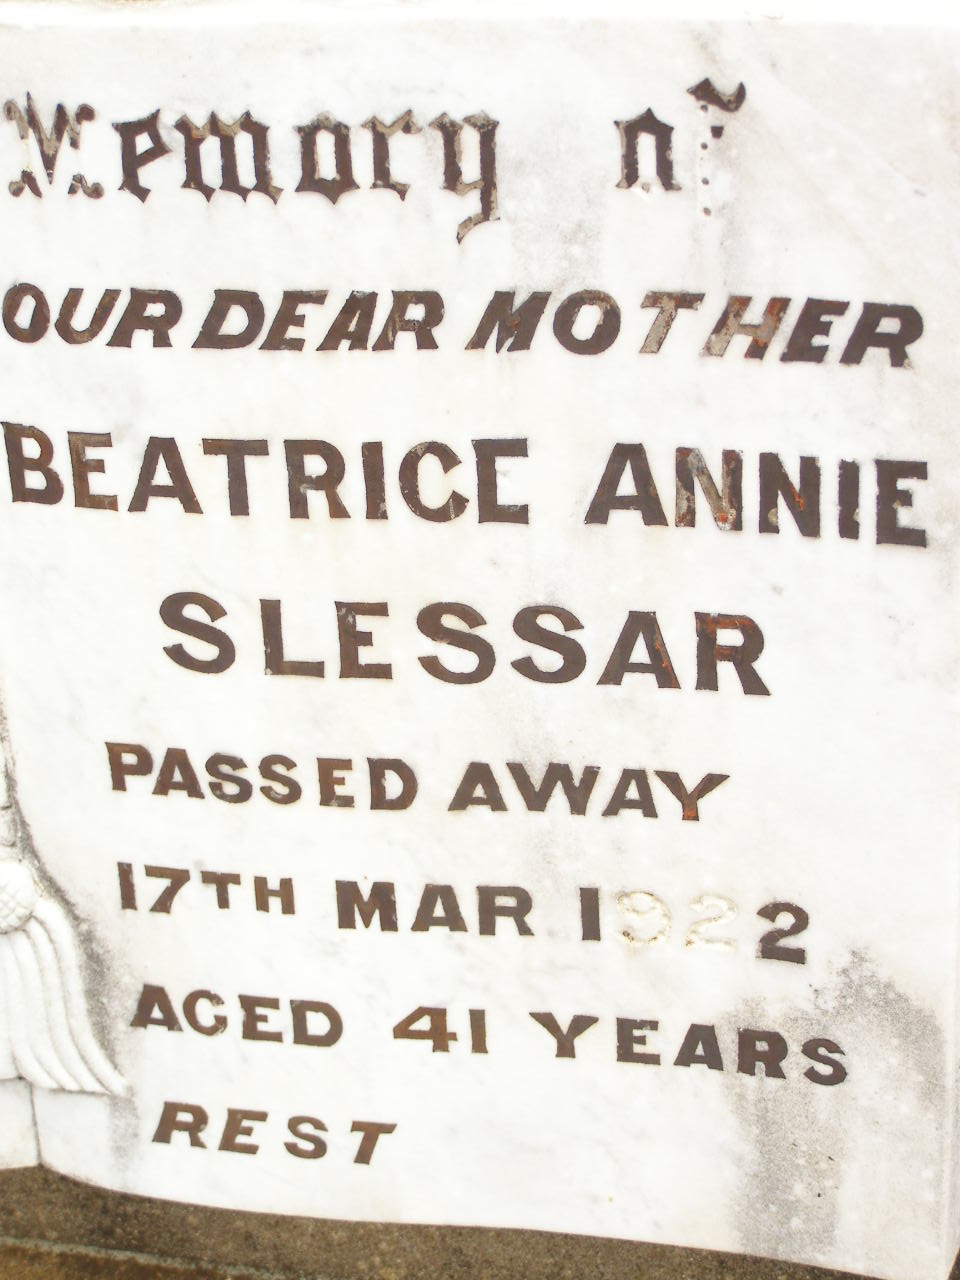 Memory of
OUR DEAR MOTHER
BEATRICE ANNIE
SLESSAR
PASSED AWAY
17TH MAR 1922
AGED 41 YEARS
REST